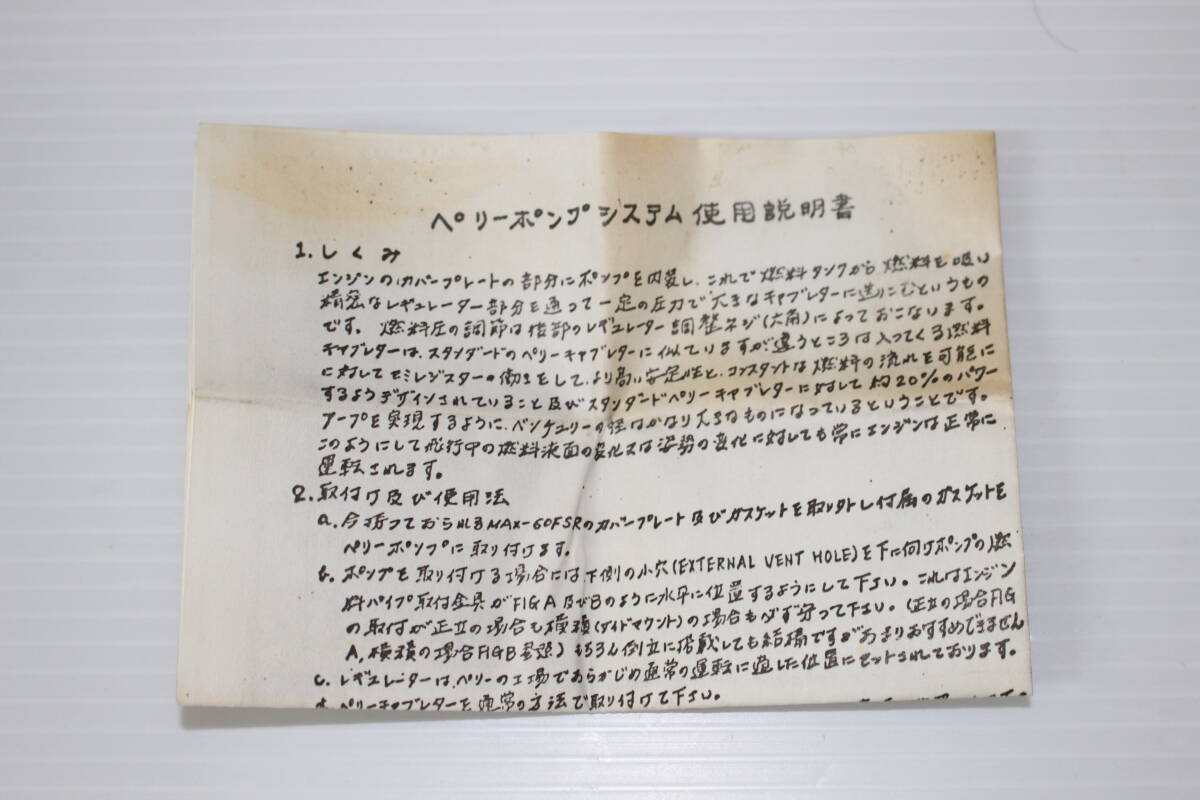 ペリーポンプシステム使用説明書
1. しくみ
エンジンのカバープレートの部分にポンプを内装し、これで燃料タンクから燃料を吸い
精密なレギュレーター部分を通って一定の圧力で大きなキャブレターに送りこむというもの
です。燃料圧の調節は後部のレギュレーター調整ネジ(六角)によっておこないます。
キャブレターは、スタンダードのペリーキャブレターに似ていますが違うところは入ってくる燃料
に対してセミレジスターの働きをして、より高い安定性と、コンスタントな燃料の流れを可能に
するようデザインされていること及びスタンダードペリーキャブレターに対して約20%のパワー
アープを実現するように、ベンチュリーの径はかなり大きなものになっているということです。
このようにして飛行中の燃料液面の変化又は姿勢の変化に対しても常にエンジンは正常に
運転されます。
2. 取付け及び使用法
a. 今持っておられるMAX-60FSRのカバープレート及びガスケットを取り外し付属のガスケットを
ペリーポンプに取り付けます。
b. ポンプを取り付ける場合には下側の小穴(EXTERNAL VENT HOLE)を下に向けポンプの燃
料パイプ取付金具がFIG A及びBのように水平に位置するようにして下さい。これはエンジン
の取付が正立の場合も横積(サイドマウント)の場合も必ず守って下さい。(正立の場合FIG
A, 横積の場合FIG B参照) もちろん倒立に搭載しても結構ですがあまりおすすめできません
c. レギュレーターは、ペリーの工場であらかじめ通常の運転に適した位置にセットされております。
d. ペリーキャブレターを通常の方法で取り付けて下さい。